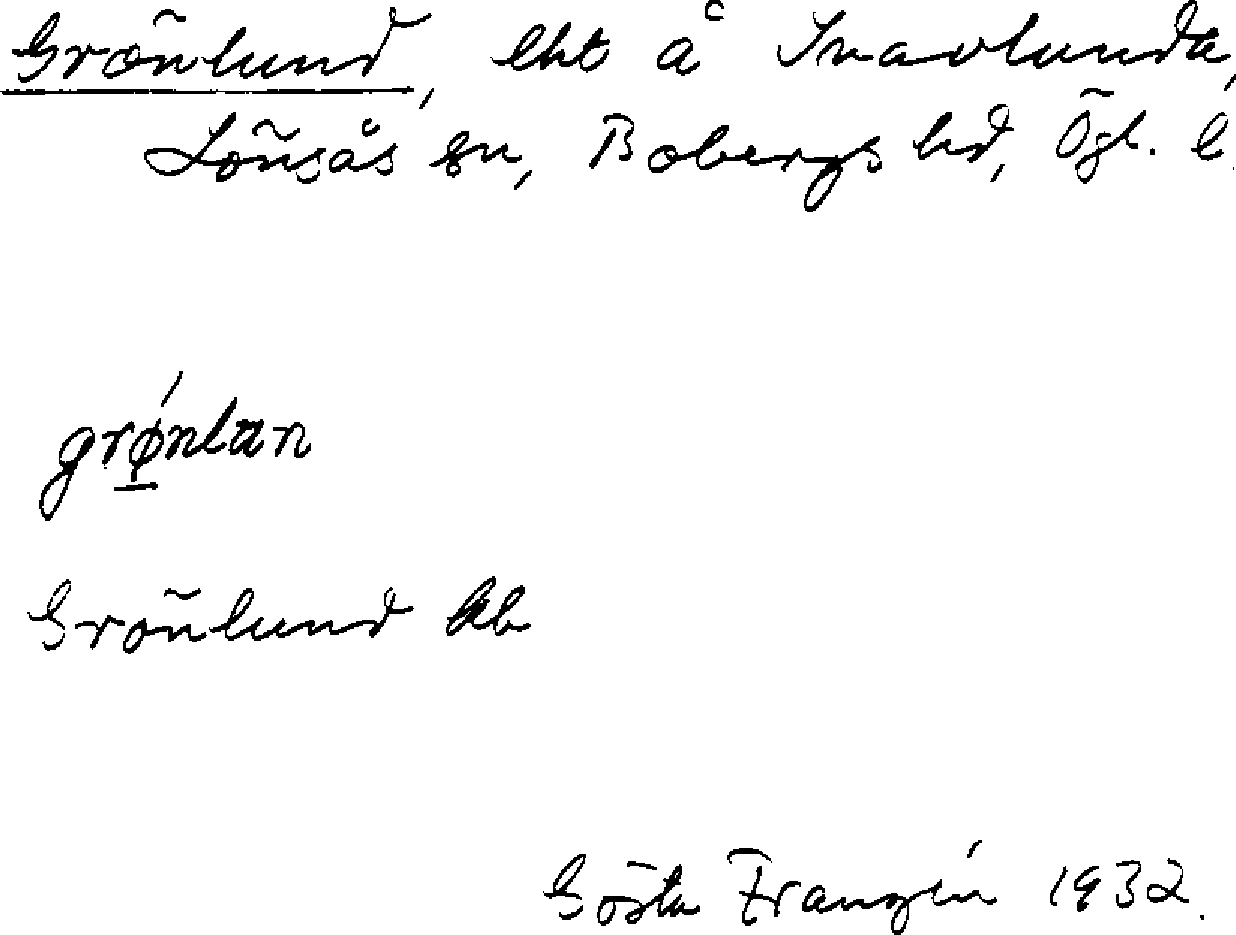 Grönlund, lht å Snavlunda,
Lönsås sn, Bobergs hd, Ögl. l.
grǿnlan
Grönlund kb
Gösta Franzén 1932.